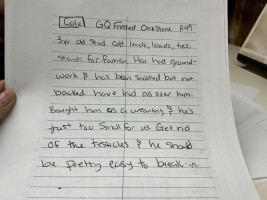 [Cole] GQ Frosted One Stone
3 yr old Stud Colt. leads, loads, ties.
Stands for farrier. Has had ground-
work & has been saddled but not
backed. have laid all over him.
Bought him as a weanling & he's
just too small for us. Get rid
of the testicles & he should
be pretty easy to break in